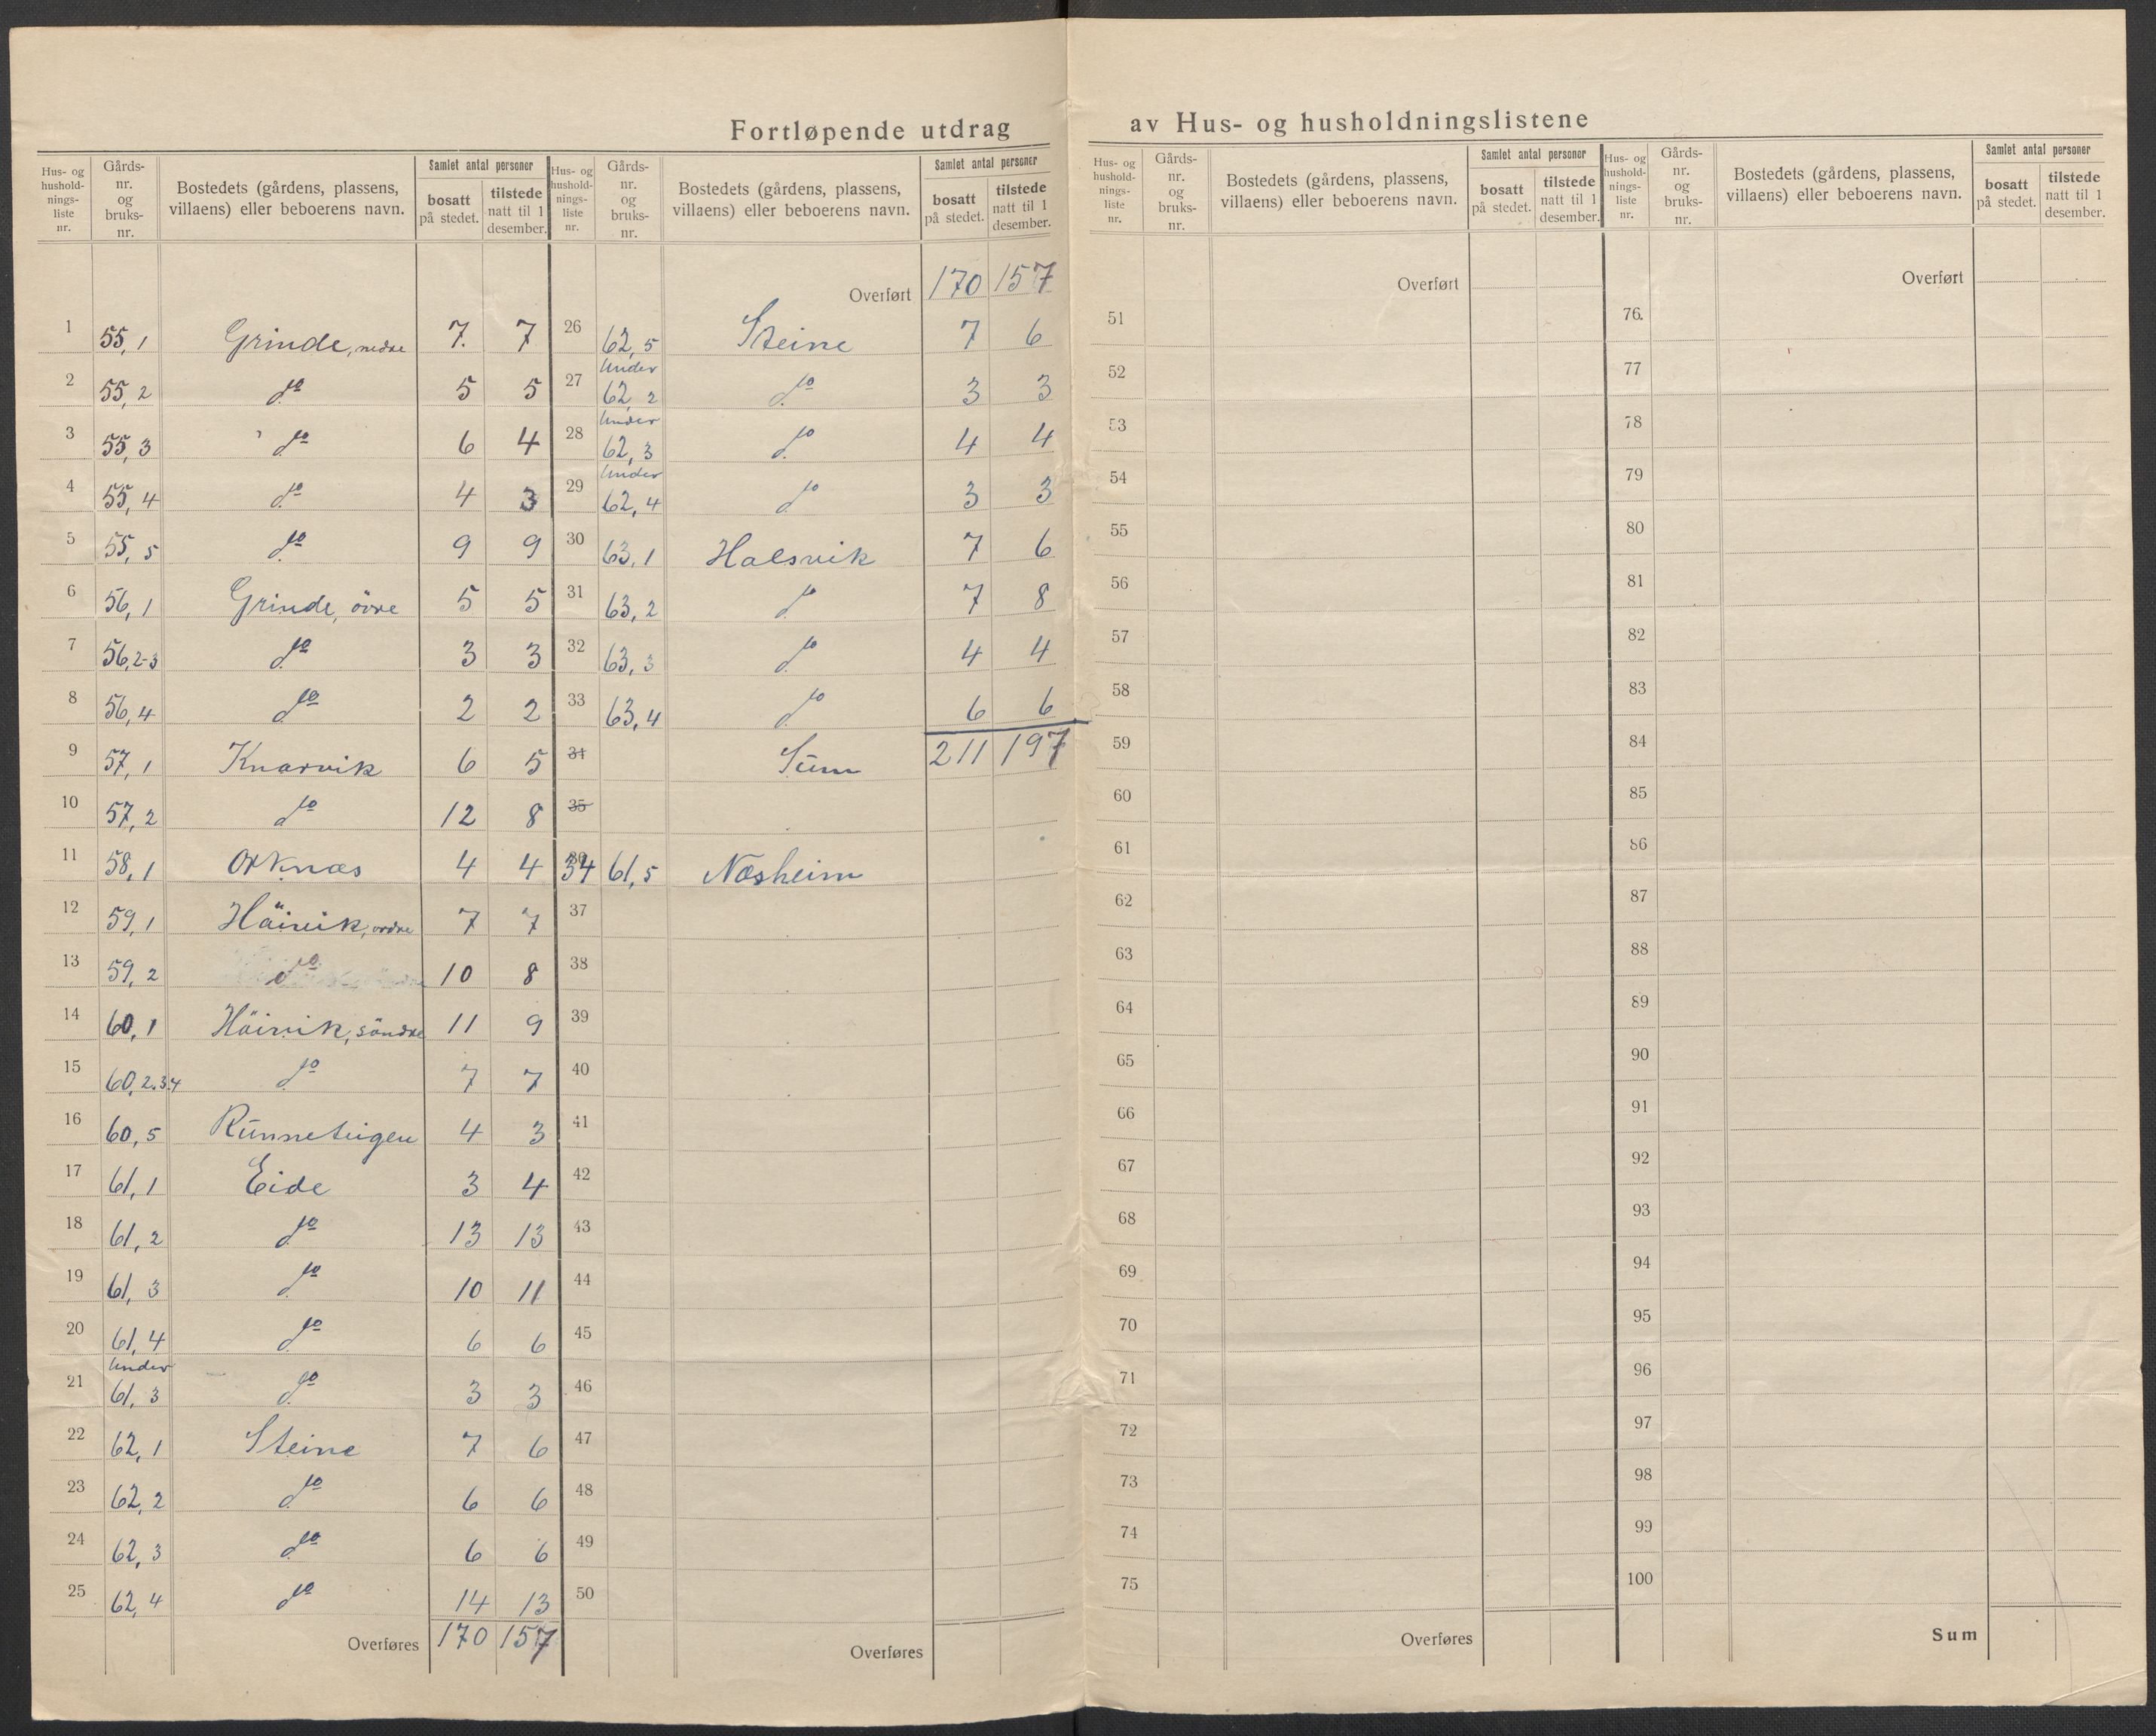 Fortløpende utdrag av Hus- og husholdningslistene
Hus- og hushold-nings-liste nr. | Gårds-nr. og bruks-nr. | Bostedets (gårdens, plassens, villaens) eller beboerens navn. | Samlet antal personer | bosatt på stedet. | tilstede natt til 1 desember.
1 55,1 Grinde, nedre 7. 7
2 55,2 do 5 5
3 55,3 do 6 4
4 55,4 do 4 3
5 55,5 do 9 9
6 56,1 Grinde, övre 5 5
7 56,2-3 do 3 3
8 56,4 do 2 2
9 57,1 Knarvik 6 5
10 57,2 do 12 8
11 58,1 Orknæs 4 4
12 59,1 Häivik, nordre 7 7
13 59,2 do 10 8
14 60,1 Häivik, söndre 11 9
15 60,2.3.4 do 7 7
16 60,5 Runneteigen 4 3
17 61,1 Eide 3 4
18 61,2 do 13 13
19 61,3 do 10 11
20 61,4 do 6 6
21 Under 61,3 do 3 3
22 62,1 Steine 7 6
23 62,2 do 6 6
24 62,3 do 6 6
25 62,4 do 14 13
Overføres 170 157
Hus- og hushold-nings-liste nr. | Gårds-nr. og bruks-nr. | Bostedets (gårdens, plassens, villaens) eller beboerens navn. | Samlet antal personer | bosatt på stedet. | tilstede natt til 1 desember.
Overført 170 157
26 62,5 Steine 7 6
27 Under 62,2 do 3 3
28 Under 62,3 do 4 4
29 Under 62,4 do 3 3
30 63,1 Halsvik 7 6
31 63,2 do 7 8
32 63,3 do 4 4
33 63,4 do 6 6
34 Sum 211 197
35
34 61,5 Næsheim
37
38
39
40
41
42
43
44
45
46
47
48
49
50
Overføres
Hus- og hushold-nings-liste nr. | Gårds-nr. og bruks-nr. | Bostedets (gårdens, plassens, villaens) eller beboerens navn. | Samlet antal personer | bosatt på stedet. | tilstede natt til 1 desember.
Overført
51
52
53
54
55
56
57
58
59
60
61
62
63
64
65
66
67
68
69
70
71
72
73
74
75
Overføres
Hus- og hushold-nings-liste nr. | Gårds-nr. og bruks-nr. | Bostedets (gårdens, plassens, villaens) eller beboerens navn. | Samlet antal personer | bosatt på stedet. | tilstede natt til 1 desember.
Overført
76.
77
78
79
80
81
82
83
84
85
86
87
88
89
90
91
92
93
94
95
96
97
98
99
100
Sum